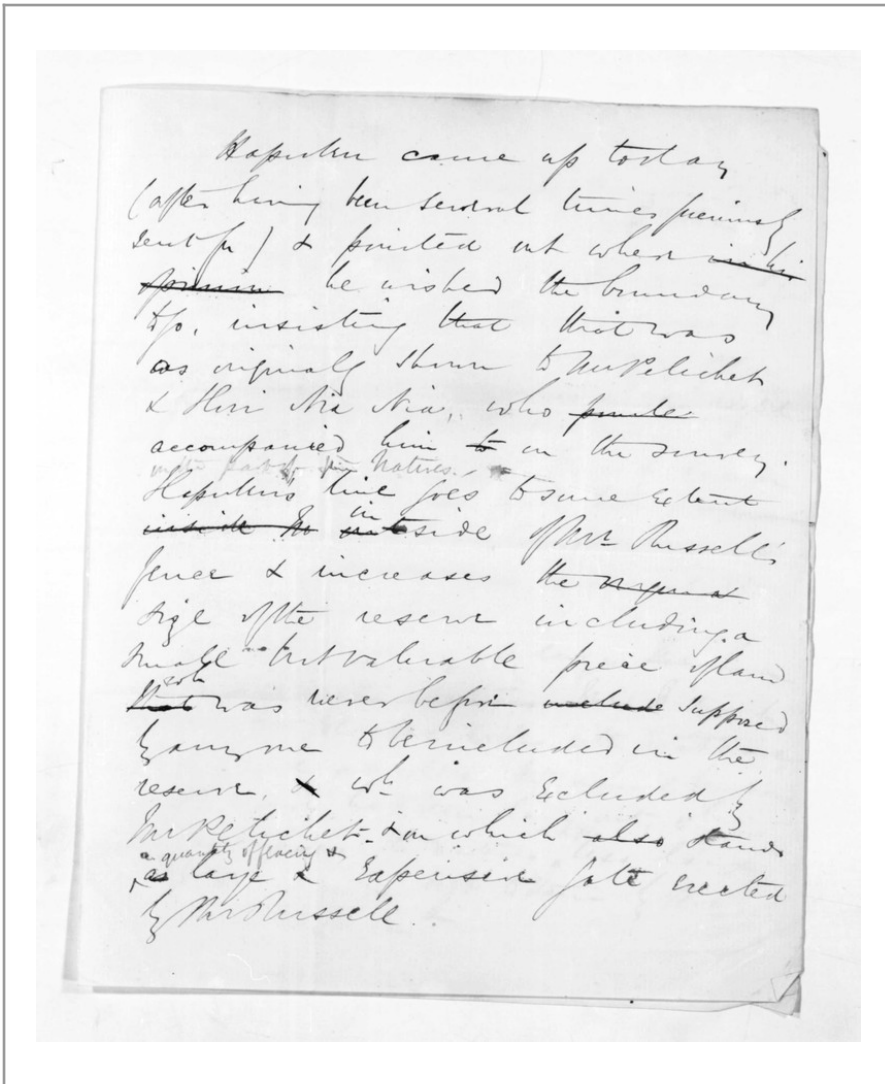 Hapuku came up today
(after having been several times previously
sent for) & pointed out where in his
opinion he wished the boundary
to go, insisting that that was
as originally shown to Mr Pelichet
& Hori Nia Nia, who
accompanied him to on the survey.
Natives.
Hapuku's line goes to some extent
inside in outside of Mr Russell's
fence & increases the original
size of the reserve including a
small but valuable piece of land
that wh was never before include supposed
by anyone to be included in the
reserve, & wh. was excluded by
Mr Pelichet & on which also stands
a quantity of fencing &
a large & expensive gate erected
by Mr Russell.